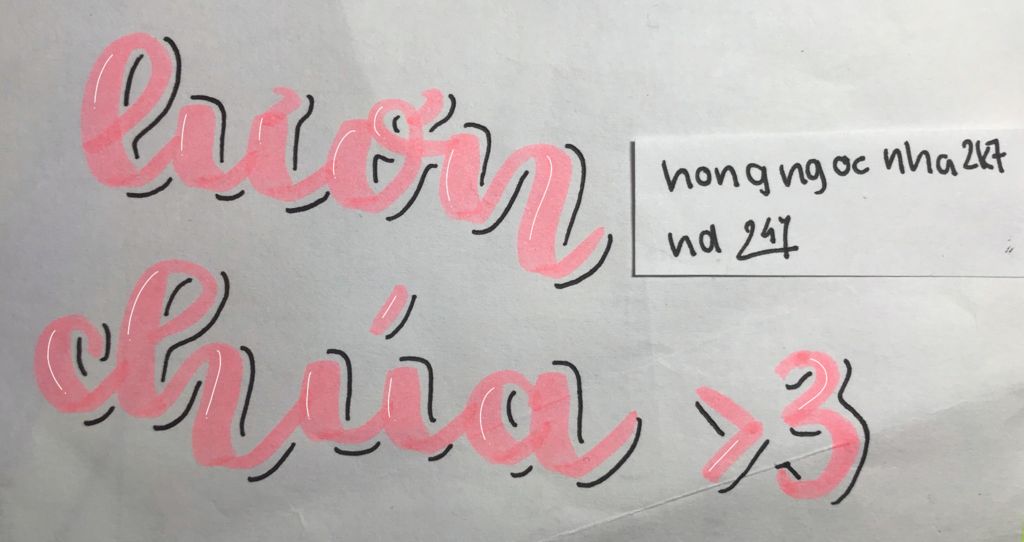 lươn
chúa >3
hongngoc nha2k7
nd 247